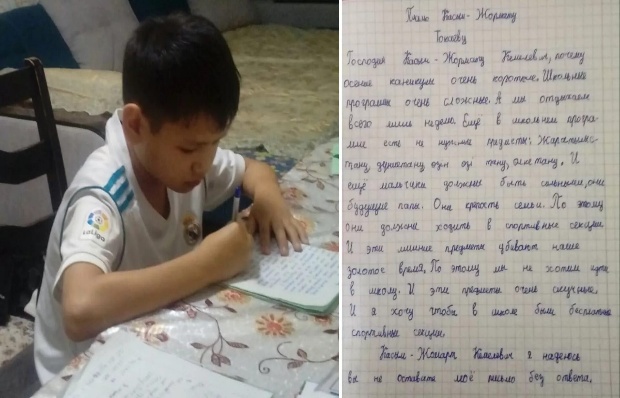 LaLiga
Письмо Касым-Жомарту
Токаеву
Господин Касым-Жомарт Кемелевич, почему
осение каникулы очень короткие. Школьные
программы очень сложные. А мы отдыхаем
всего лишь неделю. Ещё в школьной програ-
мме есть не нужные предметы:
тану, дүниетану, өзін өзі тану, И
ещё мальчики должны быть сильными, они
будущие папы. Они крепость семьи. По этому
они должны ходить в спортивные секции.
И эти лишние предметы убивают наше
золотое время. По этому мы не хотим идти
в школу. И эти предметы очень скучные.
И я хочу чтобы в школе были бесплатные
спортивные секции.
Касым-Жомарт Кемелевич я надеюсь
вы не оставите моё письмо без ответа.